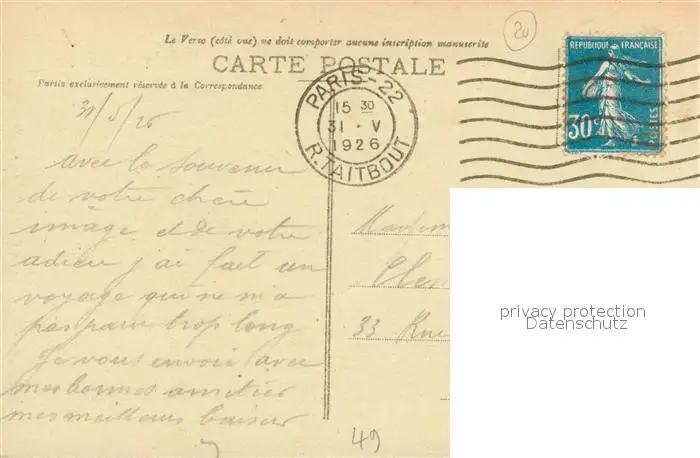 Le Verso (côté vue) ne doit comporter aucune inscription manuscrite
20
CARTE POSTALE
Partie exclusivement réservée à la Correspondance
RÉPUBLIQUE FRANÇAISE
30c
POSTES
PARIS-22
15 30
31 · V
1926
R. TAITBOUT
31/5/26
avec le souvenir
de votre chère
image et de votre
adieu j'ai fait un
voyage qui ne m'a
pas paru trop long
Je vous envoie avec
mes bonnes amitiés
mes meilleurs baisers
33 Rue
49
privacy protection
Datenschutz